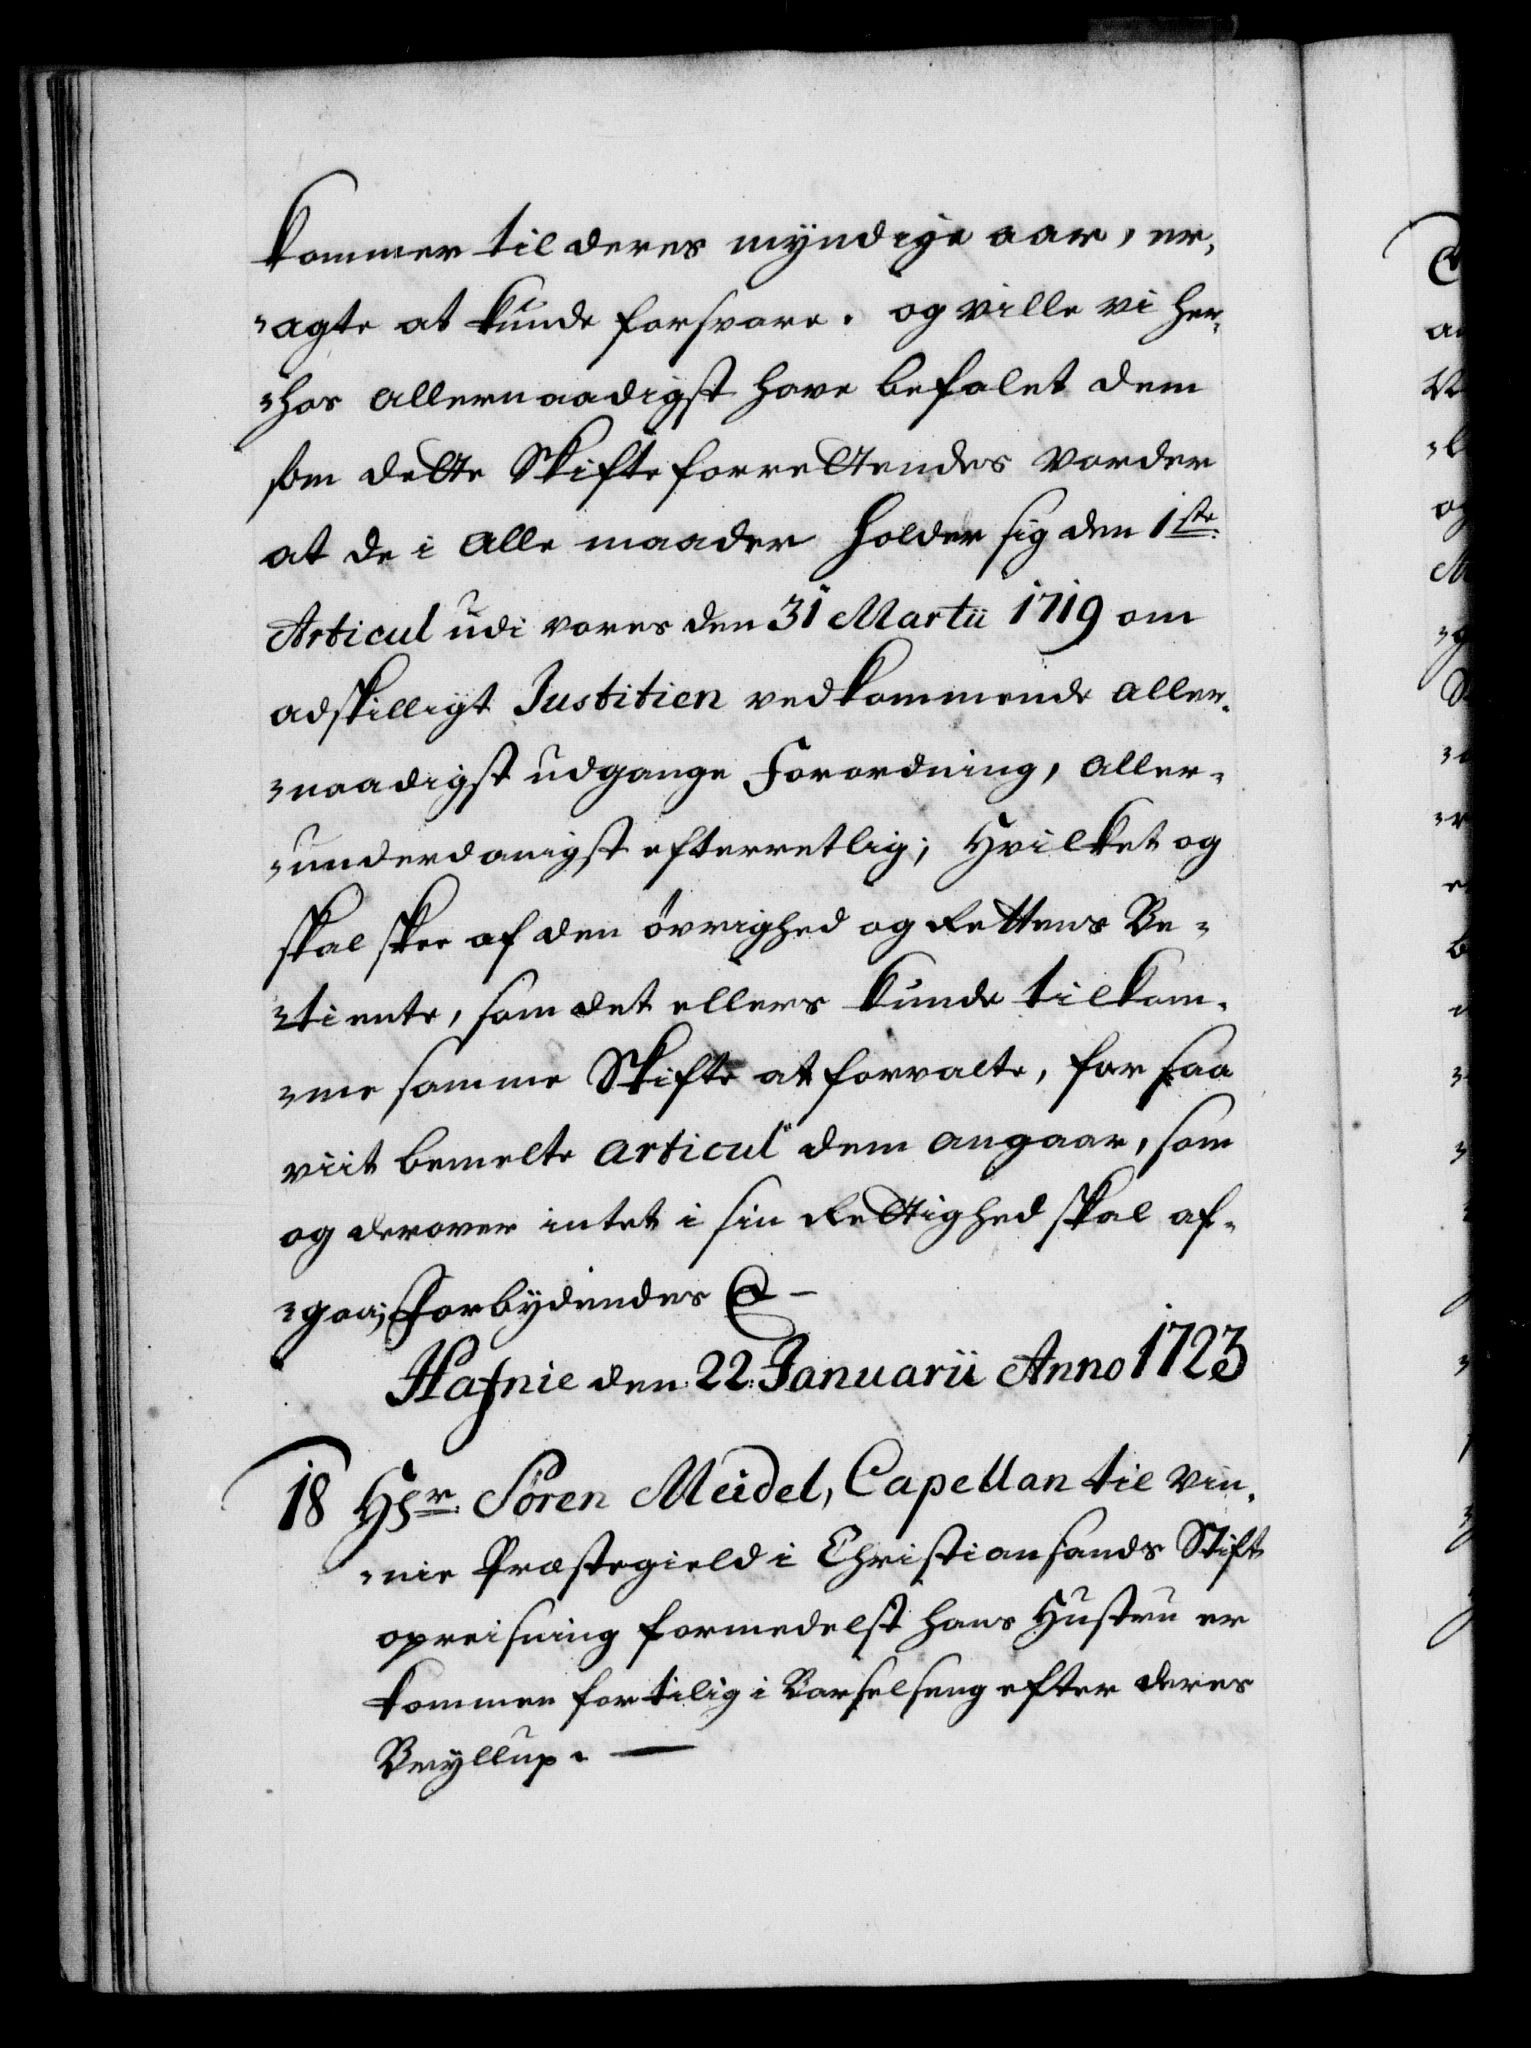 kommer til deres myndige aar, er-
-agte at kunde forsvare. og ville vi her-
-hos allernaadigst have befalet dem
som dette Skifte forrettendes vorder
at de i alle maader holder sig den 1ste
Articul udi vores den 31 Martii 1719 om
adskilligt Justitien vedkommende aller-
-naadigst udgangne Forordning, aller-
-underdanigst efterretlig; Hvilket og
skal skee af den øvrighed og Rettens Be-
-tiente, som det ellers kunde tilkom-
-me samme Skifte at forvalte, for saa
viit bemelte articul dem angaar, som
og derover intet i sin Rettighed skal af-
-gaa; Forbydendes &
Hafnie den 22 Januarii Anno 1723
18 Hr. Søren Meidel, Capellan til Vin-
-nie Præstegield i Christiansands Stift
opreisning formedelst hans Hustru er
kommen for tilig i Barselseng efter deres
Bryllup. —